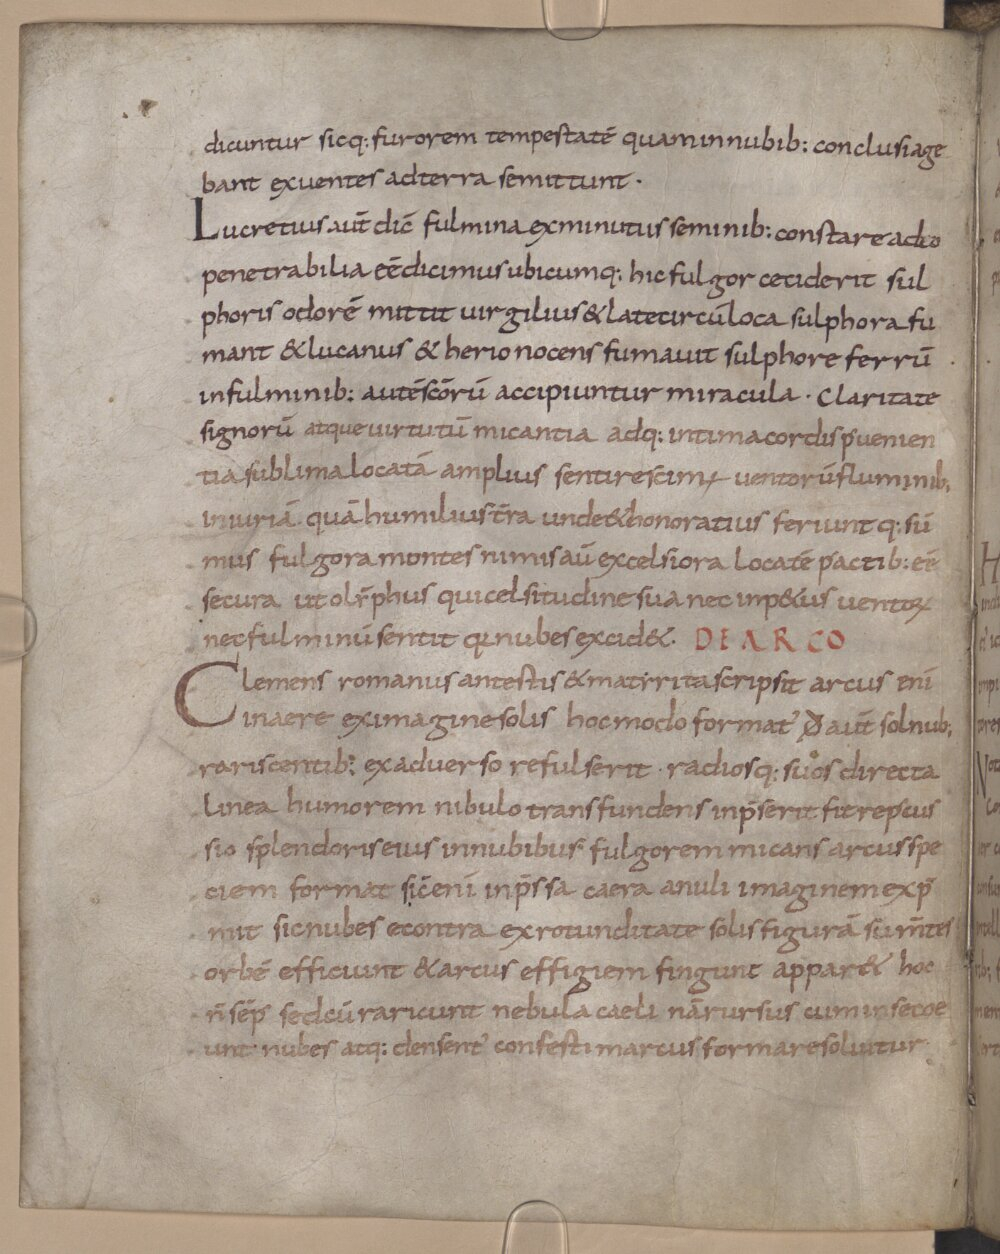 dicuntur sicq: furorem tempestatē quam in nubib: conclusi age
bant exuentes ad terra semittunt ·
Lucretius aut̄ dic̄ fulmina ex minutus seminib: constare adeo
penetrabilia eē dicimus ubicumq: hic fulgor ceciderit sul
phoris odorē mittit uirgilius & late circū loca sulphora fu
mant & lucanus & herio nocens fumauit sulphore ferrū
in fulminib: autē sc̄orū accipiuntur miracula · Claritate
signorū atque uirtutū micantia adq: intima cordis ꝑuenien
tia sublima locatā amplius sentire scimꝰ uentorū fluminib;
iniuriā quā humilius t̄ra unde & honoratius feriunt q: sū
mus fulgora montes nimis aū excelsiora locatē pactib: eē
secura ut olīphus qui celsitudine sua nec inp&us uentoꝝ
nec fulminū sentit qi nubes excid&. DE ARCO
Clemens romanus antestis & mat̄rrita scripsit arcus eni
in aere ex imagine solis hoc modo format̉ dū aut̄ sol nub;
rariscentib: ex aduerso refulserit · radiosq: suos directa
linea humorem nibulo transfundens inp̄serit fit repscus
sio splendoris eius in nubibus fulgorem micans arcus spe
ciem format sic̄ enī inp̄ssa caera anuli imaginem exp̄
mit sic nubes e contra ex rotunditate solis figurā sum̄tes
orbē efficiunt & arcus effigiem fingunt appar& hoc
n̄ sēp sed cū raricunt nebula caeli nā rursus cum in se coe
unt nubes atq: densent̉ confestim arcus formare soluitur